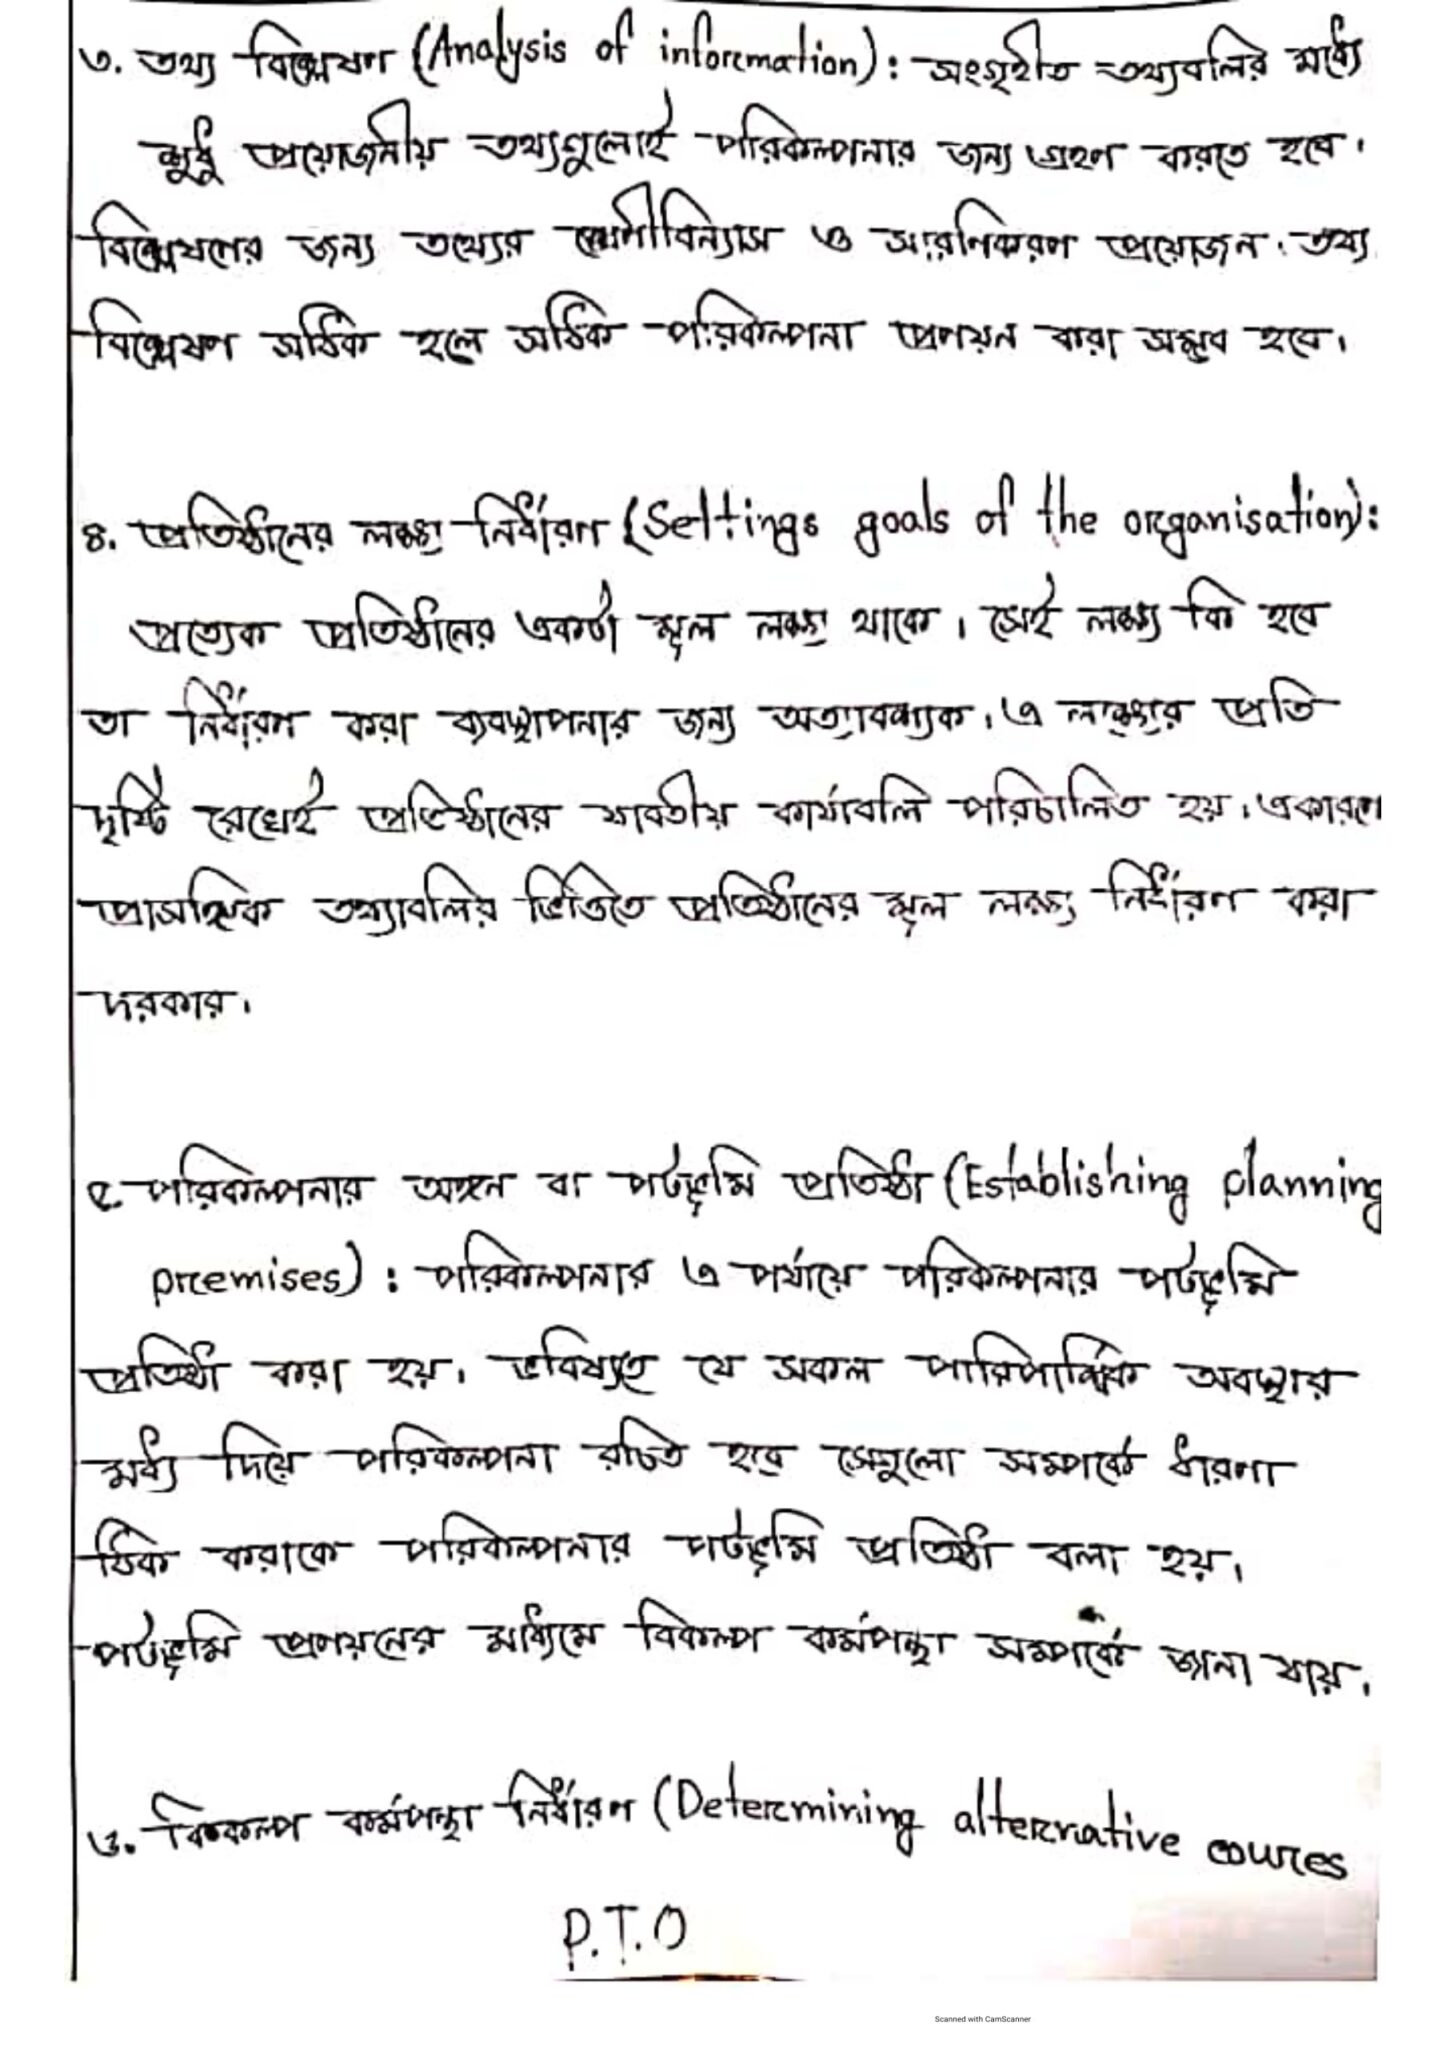 ৩. তথ্য বিশ্লেষণ (Analysis of information): সংগৃহীত তথ্যবলির মধ্যে
শুধু প্রয়োজনীয় তথ্যগুলোই পরিকল্পনার জন্য গ্রহণ করতে হবে।
বিশ্লেষণের জন্য তথ্যের শ্রেণীবিন্যাস ও সারণিকরণ প্রয়োজন। তথ্য
বিশ্লেষণ সঠিক হলে সঠিক পরিকল্পনা প্রণয়ন করা সম্ভব হবে।
৪. প্রতিষ্ঠানের লক্ষ্য নির্ধারণ (Settings goals of the organisation):
প্রত্যেক প্রতিষ্ঠানের একটা মূল লক্ষ্য থাকে। সেই লক্ষ্য কি হবে
তা নির্ধারণ করা ব্যবস্থাপনার জন্য অত্যাবশ্যক। এ লক্ষ্যের প্রতি
দৃষ্টি রেখেই প্রতিষ্ঠানের যাবতীয় কার্যাবলি পরিচালিত হয়। একারণে
প্রাসঙ্গিক তথ্যাবলির ভিত্তিতে প্রতিষ্ঠানের মূল লক্ষ্য নির্ধারণ করা
দরকার।
৫. পরিকল্পনার অঙ্গন বা পটভূমি প্রতিষ্ঠা (Establishing planning
premises): পরিকল্পনার এ পর্যায়ে পরিকল্পনার পটভূমি
প্রতিষ্ঠা করা হয়। ভবিষ্যতে যে সকল পারিপার্শ্বিক অবস্থার
মধ্য দিয়ে পরিকল্পনা রচিত হবে সেগুলো সম্পর্কে ধারণা
ঠিক করাকে পরিকল্পনার পটভূমি প্রতিষ্ঠা বলা হয়।
পটভূমি প্রণয়নের মাধ্যমে বিকল্প কর্মপন্থা সম্পর্কে জানা যায়।
৬. বিকল্প কর্মপন্থা নির্ধারণ (Determining alternative cources
P.T.O
Scanned with CamScanner